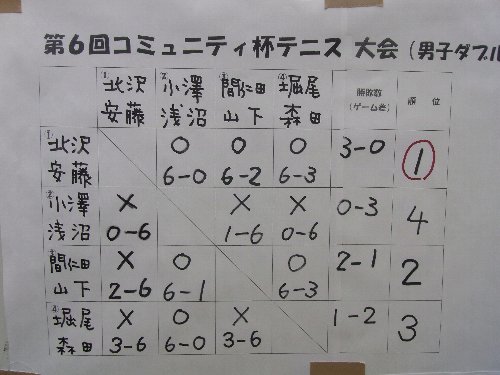 第6回コミュニティ杯テニス 大会 (男子ダブル
①北沢 ②小澤 ③間仁田 ④堀尾 勝敗数 順 位
安藤 浅沼 山下 森田 (ゲーム差)
①北沢 ○ ○ ○ 3-0 ①
安藤 6-0 6-2 6-3
②小澤 × × × 0-3 4
浅沼 0-6 1-6 0-6
③間仁田 × ○ ○ 2-1 2
山下 2-6 6-1 6-3
④堀尾 × ○ × 1-2 3
森田 3-6 6-0 3-6